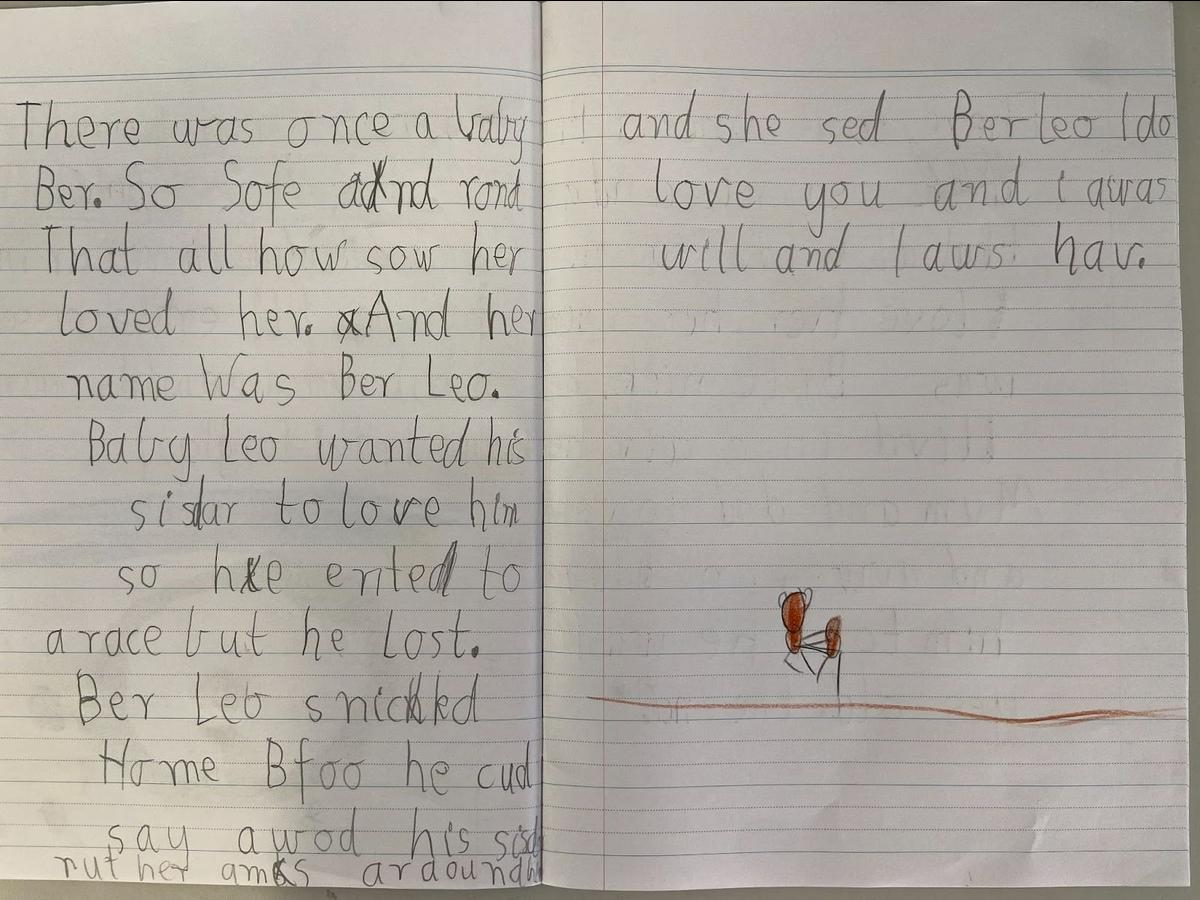 There was once a baby
Ber. So Sofe and rond
That all how sow her
loved her. And her
name Was Ber Leo.
Baby Leo wanted his
sistar to love him
so he ented to
a race but he Lost.
Ber Leo snickkd
Home Bfoo he cud
say awod his
rut her amks ardound
and she sed Ber leo I do
love you and I awas
will and I aws hav.